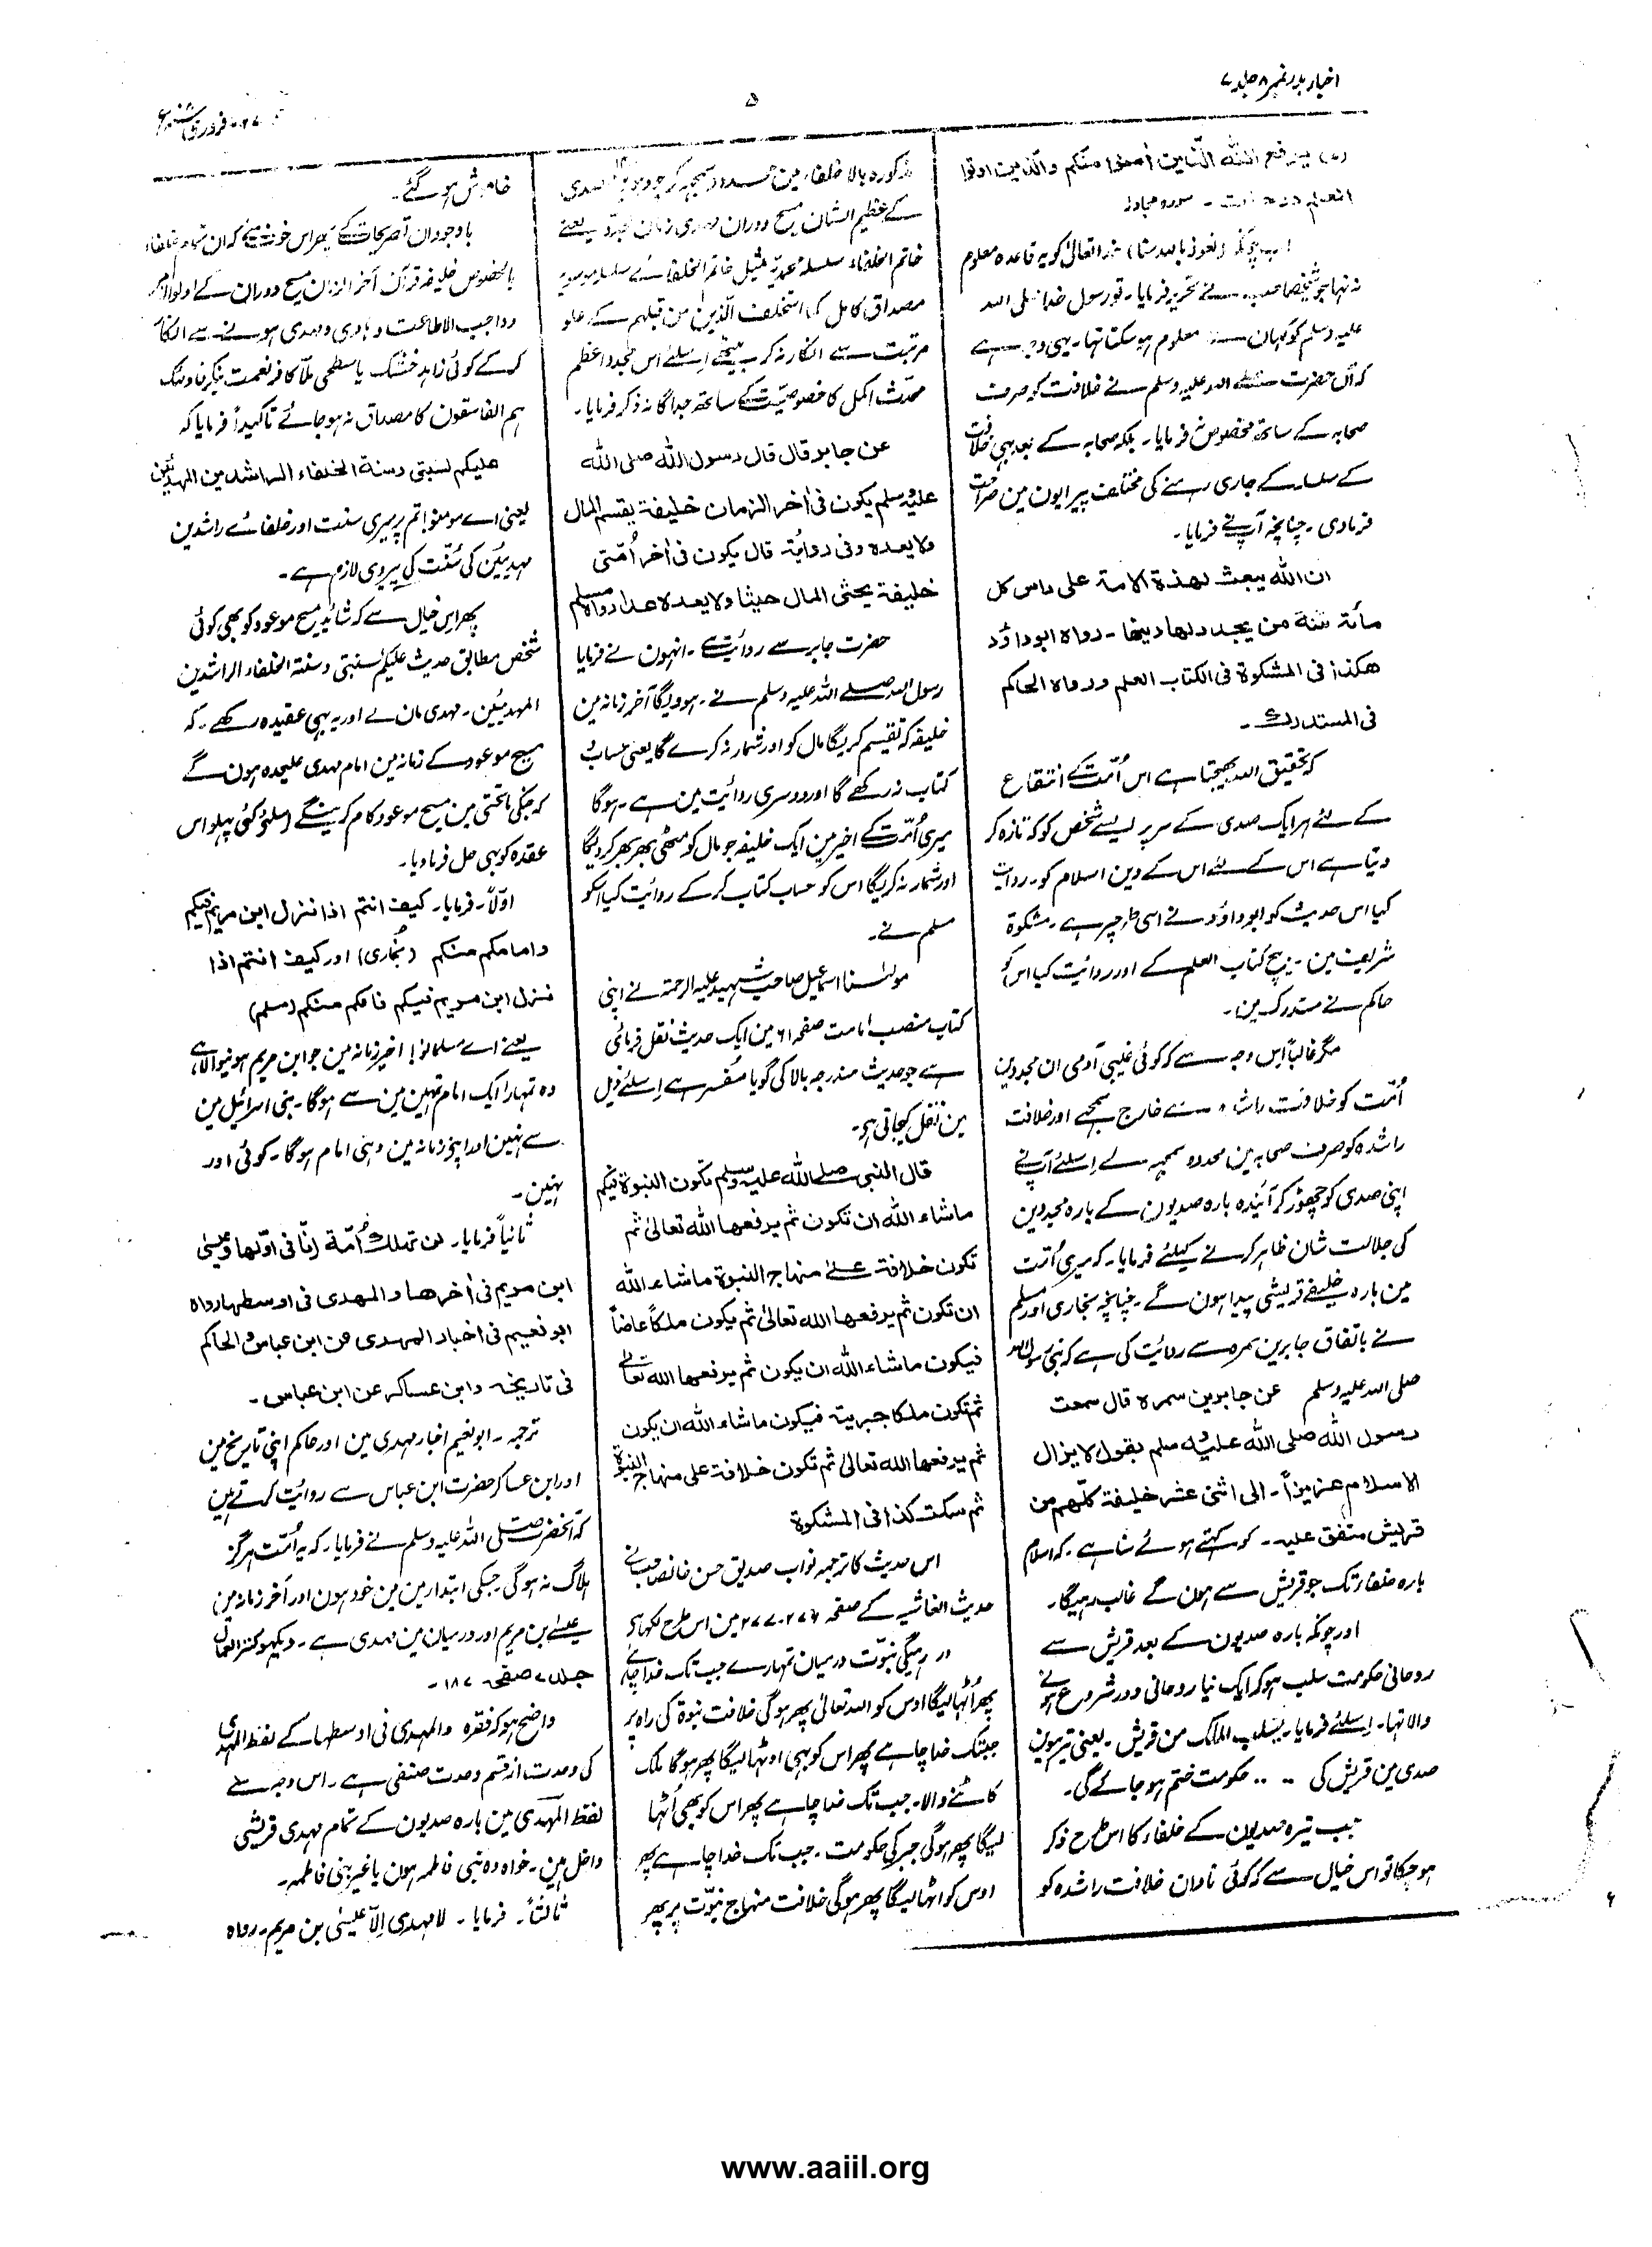 اخبار بدر نمبر ۸ جلد ۷
۵
۲۷- فروری
(۷) يرفع الله الّذين اٰمنوا منكم والّذين اوتوا
العلم درجات - سورہ مجادلہ
اب چونکہ (نعوذ باللہ منہا) خدا تعالیٰ کو یہ قاعدہ معلوم
نہ تہا جو شیخصاحب نے تحریر فرمایا۔ تو رسول خدا صلی اللہ
علیہ وسلم کو کہان سے معلوم ہو سکتا تہا۔ یہی وجہ ہے
کہ آں حضرت صلے اللہ علیہ وسلم نے خلافت کو صرف
صحابہ کے ساتھ مخصوص نہ فرمایا۔ بلکہ صحابہ کے بعد بہی خلافت
کے سلسلہ کے جاری رہنے کی مختلف پیرایون مین صراحت
فرمادی۔ چنانچہ آپ نے فرمایا۔
ان الله يبعث لهذة الامة على راس كل
مائة سنة من يجدد لها دينها - رواه ابوداؤد
هكذا فى المشكوة فى الكتاب العلم ورواه الحاكم
فى المستدرك -
کہ تحقیق اللہ بھیجتا ہے اس اُمت کے انتفاع
کے لئے ہر ایک صدی کے سر پر ایسے شخص کو کہ تازہ کر
دیتا ہے اس کے لئے اس کے دین اسلام کو۔ روایت
کیا اس حدیث کو ابوداؤد نے اسی طرح پر ہے۔ مشکوة
شریف مین۔ بیچ کتاب العلم کے اور روائیت کیا اس کو
حاکم نے مستدرک مین۔
مگر غالباً اِس وجہ سے کہ کوئی غیبی آدمی ان مجددین
اُمت کو خلافت راشدہ سے خارج سمجھے اور خلافت
راشدہ کو صرف صحابہ مین محدود سمجہہ لے اِسلئے آپ نے
اپنی صدی کو چھوڑ کر آئندہ بارہ صدیون کے بارہ مجددین
کی جلالت شان ظاہر کرنے کیلئے فرمایا۔ کہ میری اُمت
مین بارہ خلیفے قریشی پیدا ہون گے۔ چنانچہ بخاری اور مسلم
نے باتفاق جابر بن سمرہ سے روائیت کی ہے کہ نبی رسول اللہ
صلی اللہ علیہ وسلم عن جابر بن سمرة قال سمعت
رسول الله صلى الله عليه وسلم يقول لا يزال
الاسلام عزيزاً - الى اثنى عشر خليفة كلّهم من
قريش متفق عليه - کو کہتے ہوئے سُنا ہے۔ کہ اسلام
بارہ خلفاء تک جو قریش سے ہون گے غالب رہیگا۔
اور چونکہ بارہ صدیون کے بعد قریش سے
روحانی حکومت سلب ہو کر ایک نیا روحانی دور شروع ہونے
والا تہا۔ اِسلئے فرمایا۔ يسلب الملك من قريش۔ یعنی تیرہوین
صدی مین قریش کی .... حکومت ختم ہو جائے گی۔
جب تیرہ صدیون کے خلفاء کا اس طرح ذکر
ہو چکا تو اس خیال سے کہ کوئی نادان خلافت راشدہ کو
مذکورہ بالا خلفاء مین محدود سمجہہ کر چودہوین صدی
کے عظیم الشان مسیح دوران مہدی زمان مجدد یعنے
خاتم الخلفاء سلسلہ محمدیّہ مثیل خاتم الخلفائے سلسلہ موسویہ
مصداق کامل كما استخلف الّذين من قبلهم کے علو
مرتبت سے انکار نہ کر بیٹھے اِسلئے اس مجدد اعظم
محدّث اکمل کا خصوصیّت کے ساتھ جداگانہ ذکر فرمایا۔
عن جابر قال قال رسول الله صلى الله
عليه وسلم يكون فى اٰخر الزمان خليفة يقسم المال
ولا يعده وفى رواية قال يكون فى اٰخر اُمّتى
خليفة يحثى المال حيثا ولا يعده عدا رواه مسلم
حضرت جابر سے روائیت ہے۔ انہون نے فرمایا
رسول اللہ صلے اللہ علیہ وسلم نے۔ ہوویگا آخر زمانہ مین
خلیفہ کہ تقسیم کریگا مال کو اور شمار نہ کرے گا یعنی حساب
کتاب نہ رکھے گا اور دوسری روائیت مین ہے۔ ہوگا
میری اُمّت کے اخیر مین ایک خلیفہ جو مال کو مٹھی بھر بھر کر دیگا
اور شمار نہ کریگا اس کو حساب کتاب کر کے روائیت کیا اسکو
مسلم نے۔
مولٰنا اسمٰعیل صاحب شہید علیہ الرحمة نے اپنی
کتاب منصب امامت صفحہ ۶۱ مین ایک حدیث نقل فرمائی
ہے جو حدیث مندرجہ بالا کی گویا مفسر ہے اِسلئے ذیل
مین نقل کیجاتی ہے۔
قال النبى صلے الله عليه وسلم تكون النبوة فيكم
ماشاء الله ان تكون ثم يرفعها الله تعالىٰ ثم
تكون خلافة علےٰ منهاج النبوة ماشاء الله
ان تكون ثم يرفعها الله تعالىٰ ثم يكون ملكاً عاضاً
فيكون ماشاء الله ان يكون ثم يرفعها الله تعالےٰ
ثم تكون ملكا جبرية فيكون ماشاء الله ان يكون
ثم يرفعها الله تعالىٰ ثم تكون خلافة على منهاج النبوة
ثم سكت كذا فى المشكوة
اس حدیث کا ترجمہ نواب صدیق حسن خانصاحب نے
حدیث الغاشیہ کے صفحہ ۲۷۶-۲۷۷ مین اس طرح لکہا ہے
رہیگی نبوّت درمیان تمہارے جب تک خدا چاہے
پھر اُٹہا لیگا اوس کو اللہ تعالیٰ پھر ہوگی خلافت نبوة کی راہ پر
جبتک خدا چاہے پھر اس کو بہی اوٹہا لیگا پھر ہوگا ملک
کاٹنے والا۔ جب تک خدا چاہے پھر اس کو بھی اُٹہا
لیگا پھر ہوگی جبر کی حکومت۔ جب تک خدا چاہے پھر
اوس کو اٹھا لیگا پھر ہوگی خلافت منہاج نبوّت پر پھر
خاموش ہو گئے۔
باوجود ان تصریحات کے پھر اس خوف سے کہ ان تمام خلفاء
بالخصوص خلیفہ قرآن آخر الزمان مسیح دوران کے اولوالامر
و واجب الاطاعت و ہادی و مہدی ہونے سے انکار
کر کے کوئی زاہد خشک یا سطحی ملّا کافر نعمت بنکر فاولئک
ہم الفاسقون کا مصداق نہ ہو جائے تاکیداً فرمایا کہ
عليكم لسنتى وسنة الخلفاء الراشدين المهديّين
یعنی اے مومنو! تم پر میری سنت اور خلفائے راشدین
مہدیّین کی سُنّت کی پیروی لازم ہے۔
پھر اس خیال سے کہ شائد مسیح موعود کو بھی کوئی
شخص مطابق حدیث علیکم لسنتی وسنة الخلفاء الراشدین
المہدیّین۔ مہدی مان لے اور یہ بہی عقیدہ رکھے۔ کہ
مسیح موعود کے زمانہ مین امام مہدی علیحدہ ہون گے
کہ جنکی ماتحتی مین مسیح موعود کام کرینگے اسلئے کئی پہلو اس
عقدہ کو بہی حل فرما دیا۔
اوّلاً۔ فرمایا۔ كيف انتم اذا نزل ابن مريم فيكم
وامامكم منكم (بخاری) اور كيف انتم اذا
نزل ابن مريم فيكم فامكم منكم (مسلم)
یعنے اے مسلمانو! اخیر زمانہ مین جو ابن مریم ہونیوالا ہے
وہ تمہارا ایک امام تمہین مین سے ہوگا۔ بنی اسرائیل مین
سے نہین اور اپنے زمانہ مین وہی امام ہوگا۔ کوئی اور
نہین۔
ثانیاً فرمایا۔ لن تهلك اُمّة انا فى اوّلها وعيسىٰ
ابن مريم فى اٰخرها والمهدى فى اوسطها رواه
ابو نعيم فى اخبار المهدى عن ابن عباس والحاكم
فى تاريخه وابن عساكر عن ابن عباس -
ترجمہ۔ ابو نعیم اخبار مہدی مین اور حاکم اپنی تاریخ مین
اور ابن عساکر حضرت ابن عباس سے روائیت کرتے ہین
کہ آنحضرت صلی اللہ علیہ وسلم نے فرمایا۔ کہ یہ اُمّت ہرگز
ہلاک نہ ہوگی۔ جسکی ابتدا مین مین خود ہون اور آخر زمانہ مین
عیسےٰ بن مریم اور درمیان مین مہدی ہے۔ دیکھو کنز العمال
جلد ۷ صفحہ ۱۸۷ -
واضح ہو کہ فقرہ والمہدی فی اوسطہا کے لفظ المہدی
کی وحدت از قسم وحدت صنفی ہے۔ اس وجہ سے
لفظ المہدی مین بارہ صدیون کے تمام مہدی قریشی
داخل ہین۔ خواہ وہ بنی فاطمہ ہون یا غیر بنی فاطمہ۔
ثالثاً۔ فرمایا۔ لا مهدى اِلّا عيسىٰ بن مريم۔ رواہ
www.aaiil.org